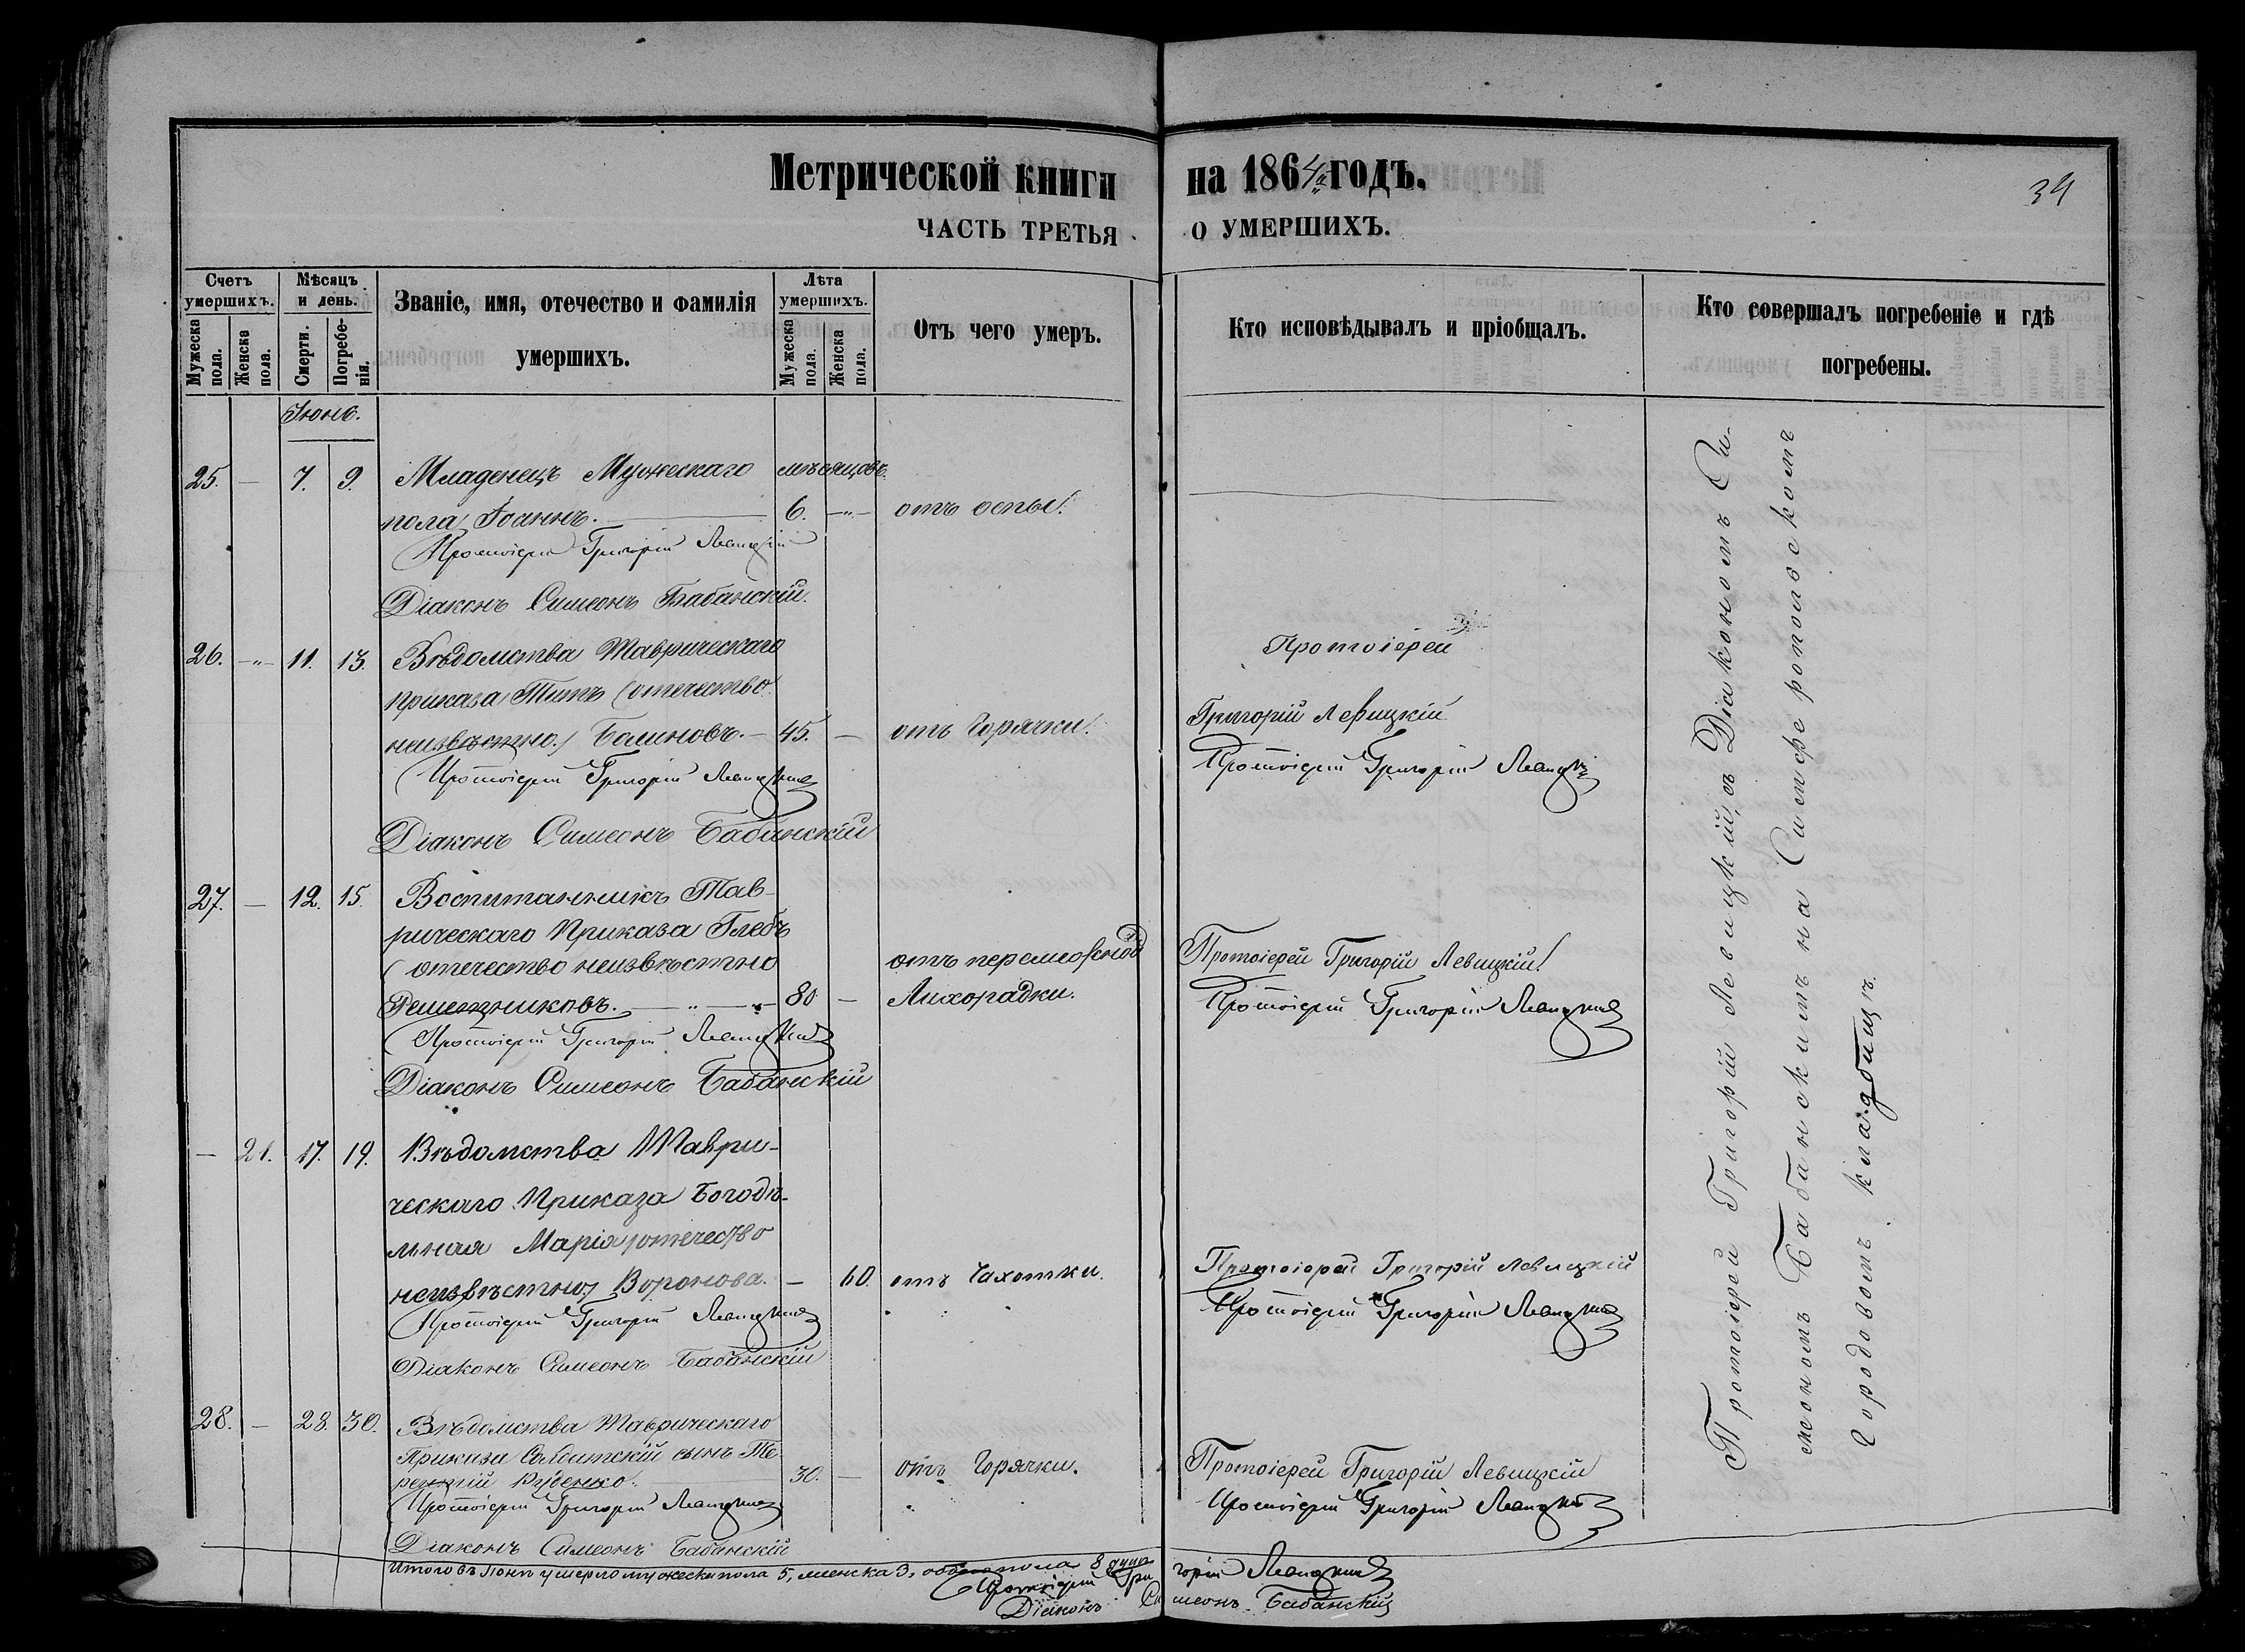 Метрической книги на 1864й годъ.
34
ЧАСТЬ ТРЕТЬЯ О УМЕРШИХЪ.
Счетъ умершихъ.
Мужеска пола.
Женска пола.
Мѣсяцъ и день.
Смерти.
Погребе-нія.
Званіе, имя, отечество и фамилія
умершихъ.
Лѣта умершихъ.
Мужеска пола.
Женска пола.
Отъ чего умеръ.
Кто исповѣдывалъ и пріобщалъ.
Кто совершалъ погребеніе и гдѣ
погребены.
Іюнь.
25. — 7. 9. Младенецъ Мужескаго мѣсяцовъ.
пола Іоаннъ. 6. —"— отъ оспы.
Протоіерей Григорій Левицкій
Діаконъ Симеонъ Бабанскій.
26. —"— 11. 13. Вѣдомства Таврическаго
приказа Титъ (отечество
неизвѣстно.) Балиновъ. — 45. — отъ Горячки.
Протоіерей Григорій Левицкій
Діаконъ Симеонъ Бабанскій
Протоіерей
Григорій Левицкій
Протоіерей Григорій Левицкій
27. — 12. 15. Воспитанникъ Тав-
рическаго Приказа Глебъ
(отечество неизвѣстно отъ перемежной
Решетниковъ. 80 — Лихорадки.
Протоіерей Григорій Левицкій
Діаконъ Симеонъ Бабанскій
Протоіерей Григорій Левицкій
Протоіерей Григорій Левицкій
— 21. 17. 19. Вѣдомства Таври-
ческаго Приказа Богодѣ-
льная Марія (отечество
неизвѣстно) Воронова. — 60. отъ Чахотки.
Протоіерей Григорій Левицкій
Діаконъ Симеонъ Бабанскій
Протоіерей Григорій Левицкій
Протоіерей Григорій Левицкій
28. — 28. 30. Вѣдомства Таврическаго
Приказа Солдатскій сынъ Те-
рентій Руденко. 30. — отъ Горячки.
Протоіерей Григорій Левицкій
Діаконъ Симеонъ Бабанскій
Протоіерей Григорій Левицкій
Протоіерей Григорій Левицкій
Протоіерей Григорій Левицкій, съ Діакономъ Си-
меономъ Бабанскимъ на Симферопольскомъ
Городовомъ кладбищѣ.
Итого въ Іюнѣ умерло мужеска пола 5, женска 3, обоего пола 8 душъ
Протоіерей Григорій Левицкій
Діаконъ Симеонъ Бабанскій